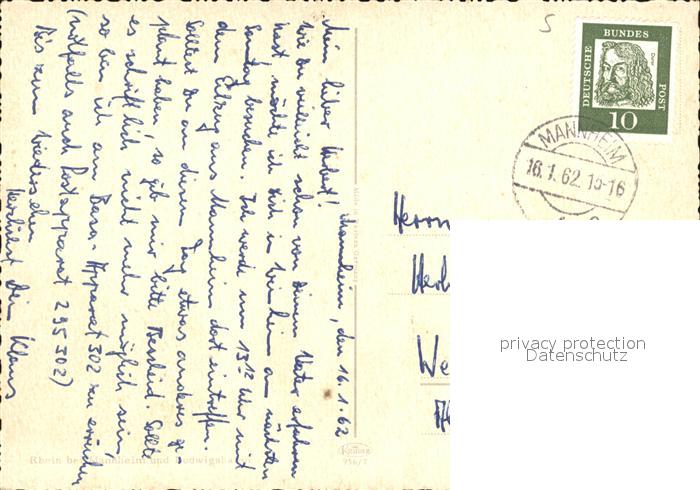 Mannheim, den 16.1.62
Mein lieber Herbert!
Wie Du vielleicht schon von Deinem Vater erfahren
hast, möchte ich Dich in am nächsten
Sonntag besuchen. Ich werde um 13 12 Uhr mit
dem Eilzug aus Mannheim dort eintreffen.
Solltest Du an diesem Tag etwas anderes ge-
plant haben, so gib mir bitte Bescheid. Sollte
es schriftlich nicht mehr möglich sein,
so bin ich am Basa-Apparat 302 zu erreichen
(notfalls auch Postapparat 295302)
Bis zum Wiedersehen
Dein Klaus
Rhein bei Mannheim und Ludwigshafen
Krüger
936/7
5
DEUTSCHE BUNDES POST
Dürer
10
MANNHEIM
16.1.62.15-16
Herrn
Her
We
privacy protection
Datenschutz